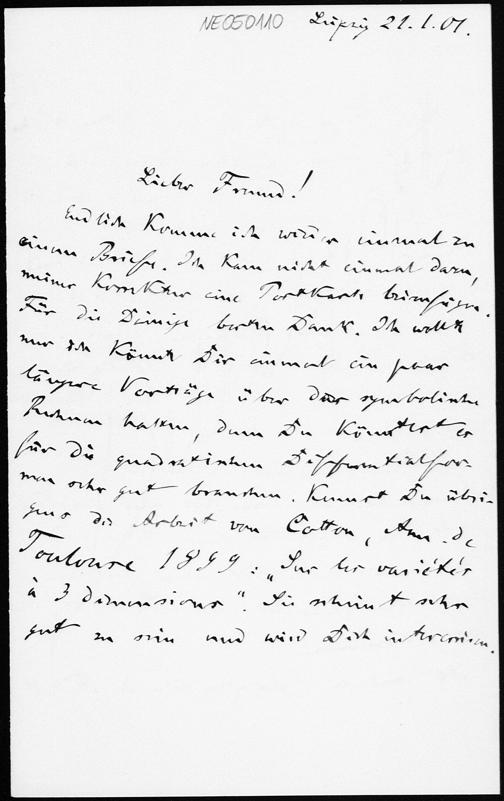 NE050110 Leipzig 21.1.01.
Lieber Freund!
Endlich komme ich wieder einmal zu
einem Briefe. Ich kam nicht einmal dazu,
meiner Korrektur eine Postkarte beizufügen.
Für die Deinige besten Dank. Ich wollte
nur ich könnte Dir einmal ein paar
längere Vorträge über das symbolische
Rechnen halten, denn Du könntest es
für die quadratischen Differentialfor-
men sehr gut brauchen. Kennst Du übri-
gens die Arbeit von Cotton, Ann. de
Toulouse 1899: „Sur les variétés
à 3 dimensions“. Sie scheint sehr
gut zu sein und wird Dich interessieren.